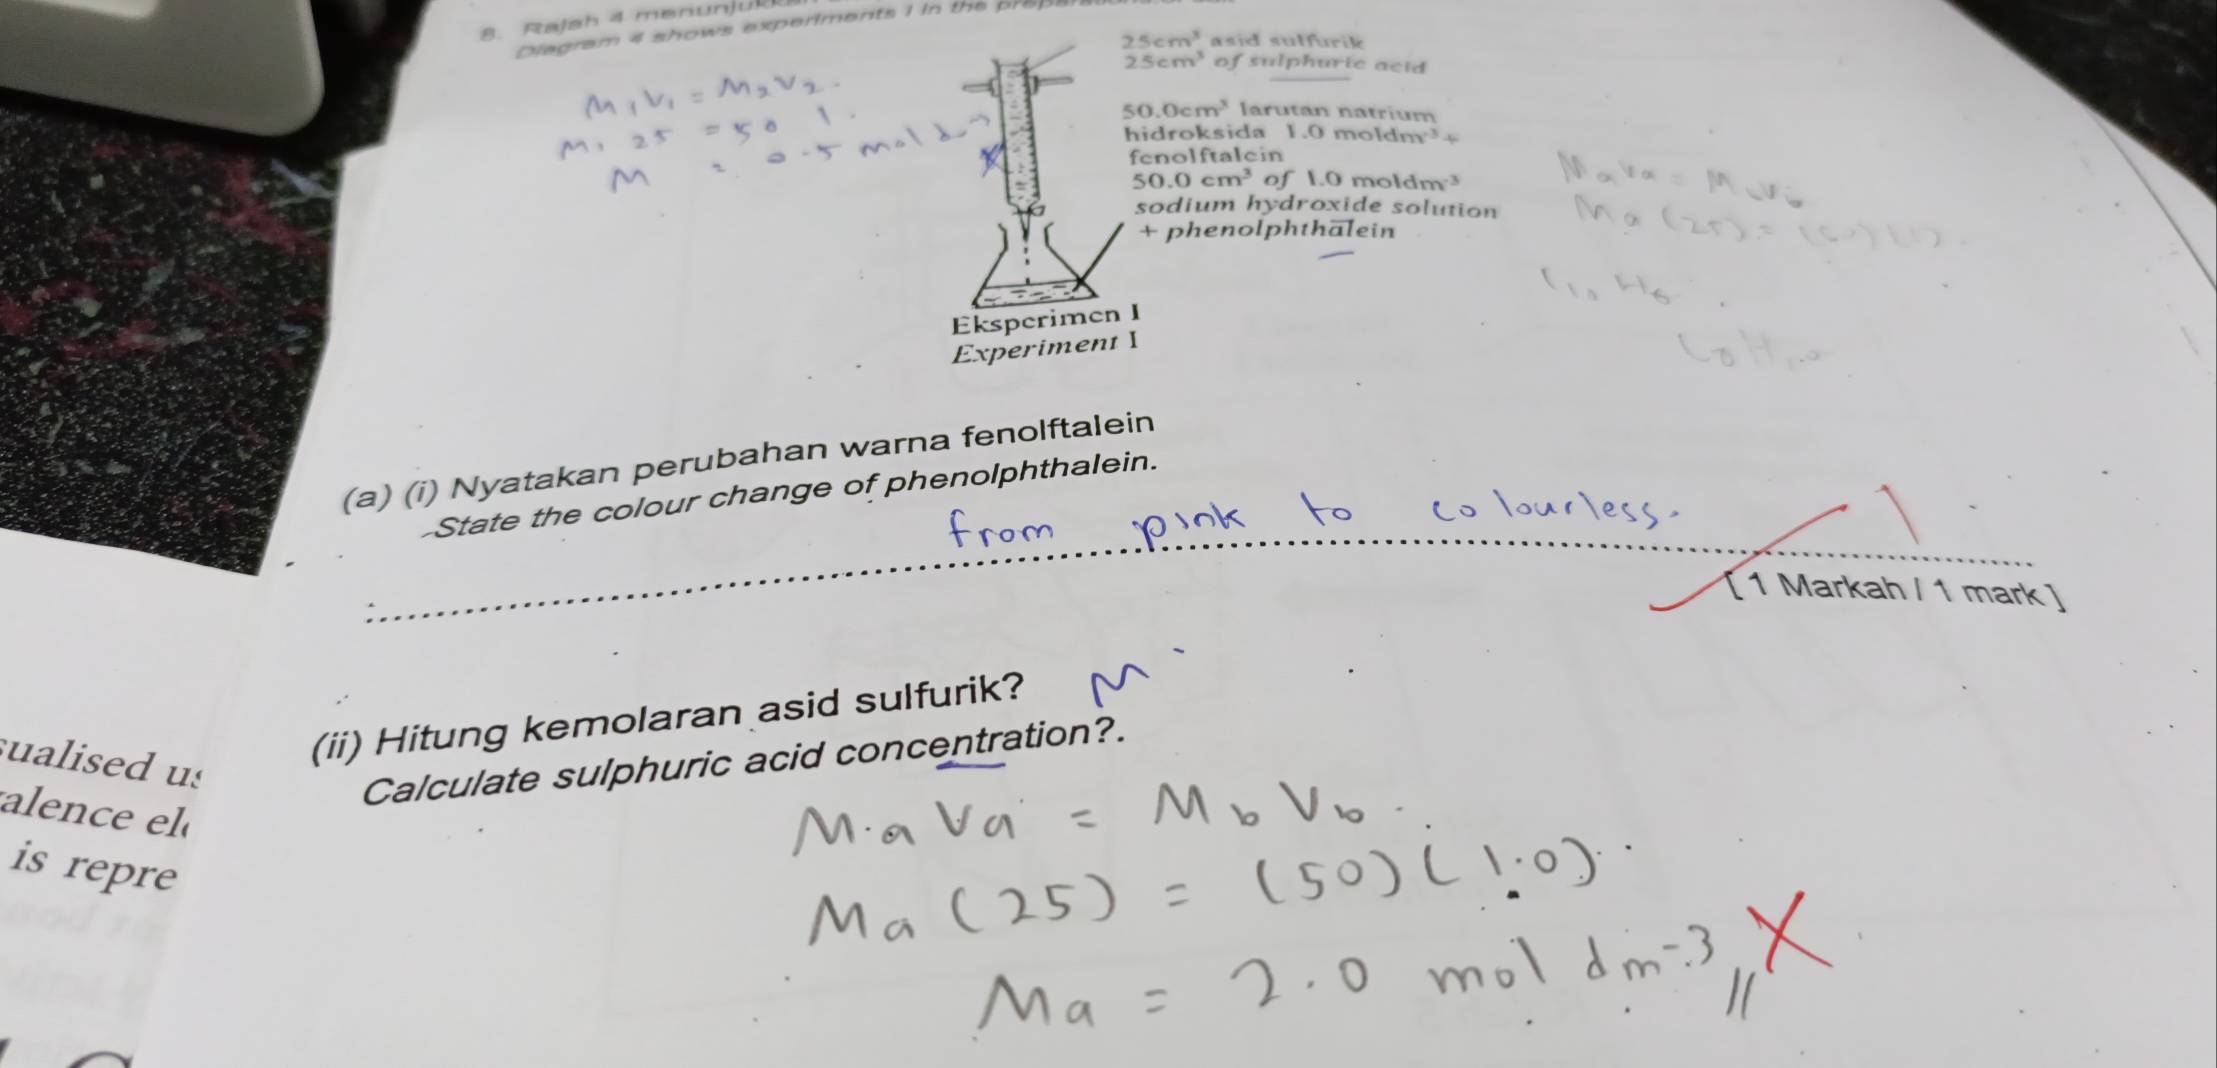 8. Rajah 4
Diagram 4 shows experiments I in the
25cm³ asid sulfurik
25cm³ of sulphuric acid
50.0cm³ larutan natrium
hidroksida 1.0 moldm⁻³ +
fenolftalein
50.0 cm³ of 1.0 moldm⁻³
sodium hydroxide solution
+ phenolphthalein
M₁V₁ = M₂V₂.
M₁ 25 = 50 1.
M = 0.5 mol
MaVa = MbVb
Ma (25) = (50) (1).
Eksperimen I
Experiment I
(a) (i) Nyatakan perubahan warna fenolftalein
State the colour change of phenolphthalein.
from pink to colourless.
1
[ 1 Markah / 1 mark ]
(ii) Hitung kemolaran asid sulfurik?
M
Calculate sulphuric acid concentration?.
MaVa = MbVb.
Ma (25) = (50) (1.0).
Ma = 2.0 mol dm⁻³ // X
ualised us
alence ele
is repre